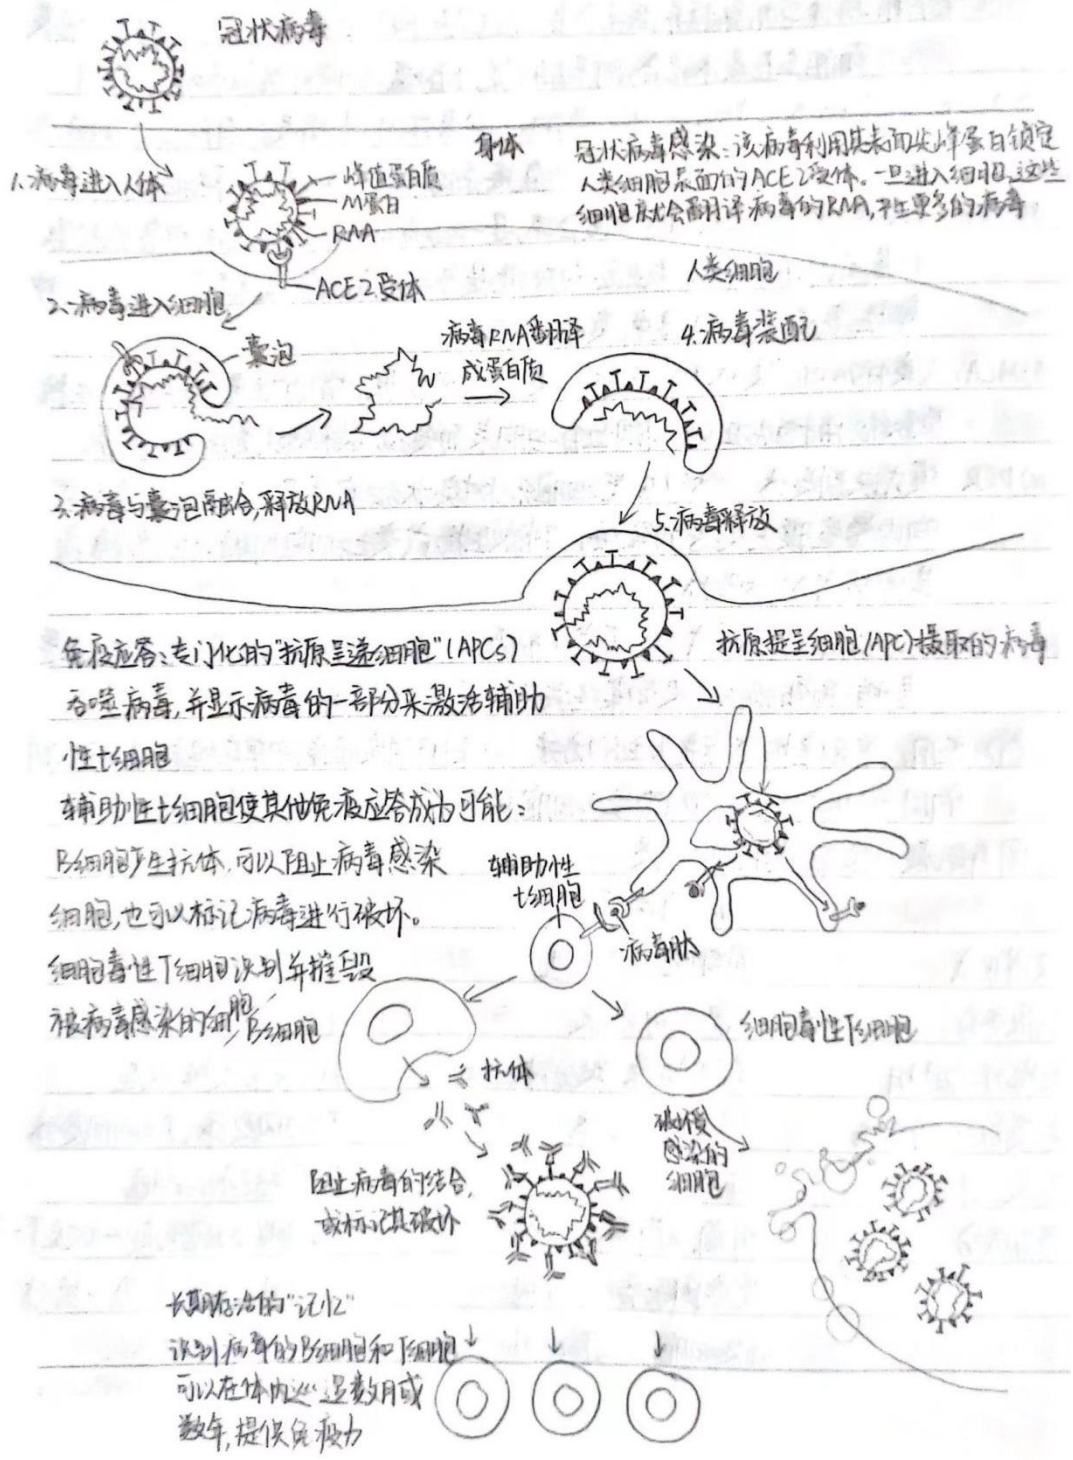 冠状病毒
1.病毒进入人体
身体
冠状病毒感染:该病毒利用其表面尖峰蛋白锁定
人类细胞表面的ACE2受体。一旦进入细胞,这些
细胞就会翻译病毒的RNA,产生更多的病毒
峰值蛋白质
M蛋白
RNA
ACE2受体
人类细胞
2.病毒进入细胞
囊泡
病毒RNA翻译
成蛋白质
4.病毒装配
3.病毒与囊泡融合,释放RNA
5.病毒释放
免疫应答:专门化的“抗原呈递细胞”(APCs)
吞噬病毒,并显示病毒的一部分来激活辅助
性t细胞
抗原提呈细胞(APC)摄取的病毒
辅助性t细胞使其他免疫应答成为可能:
B细胞产生抗体,可以阻止病毒感染
细胞,也可以标记病毒进行破坏。
细胞毒性T细胞识别并摧毁
被病毒感染的细胞
辅助性
t细胞
病毒肽
B细胞
细胞毒性T细胞
抗体
破坏
感染的
细胞
阻止病毒的结合,
或标记其破坏
长期存活的“记忆”
识别病毒的B细胞和T细胞
可以在体内巡逻数月或
数年,提供免疫力